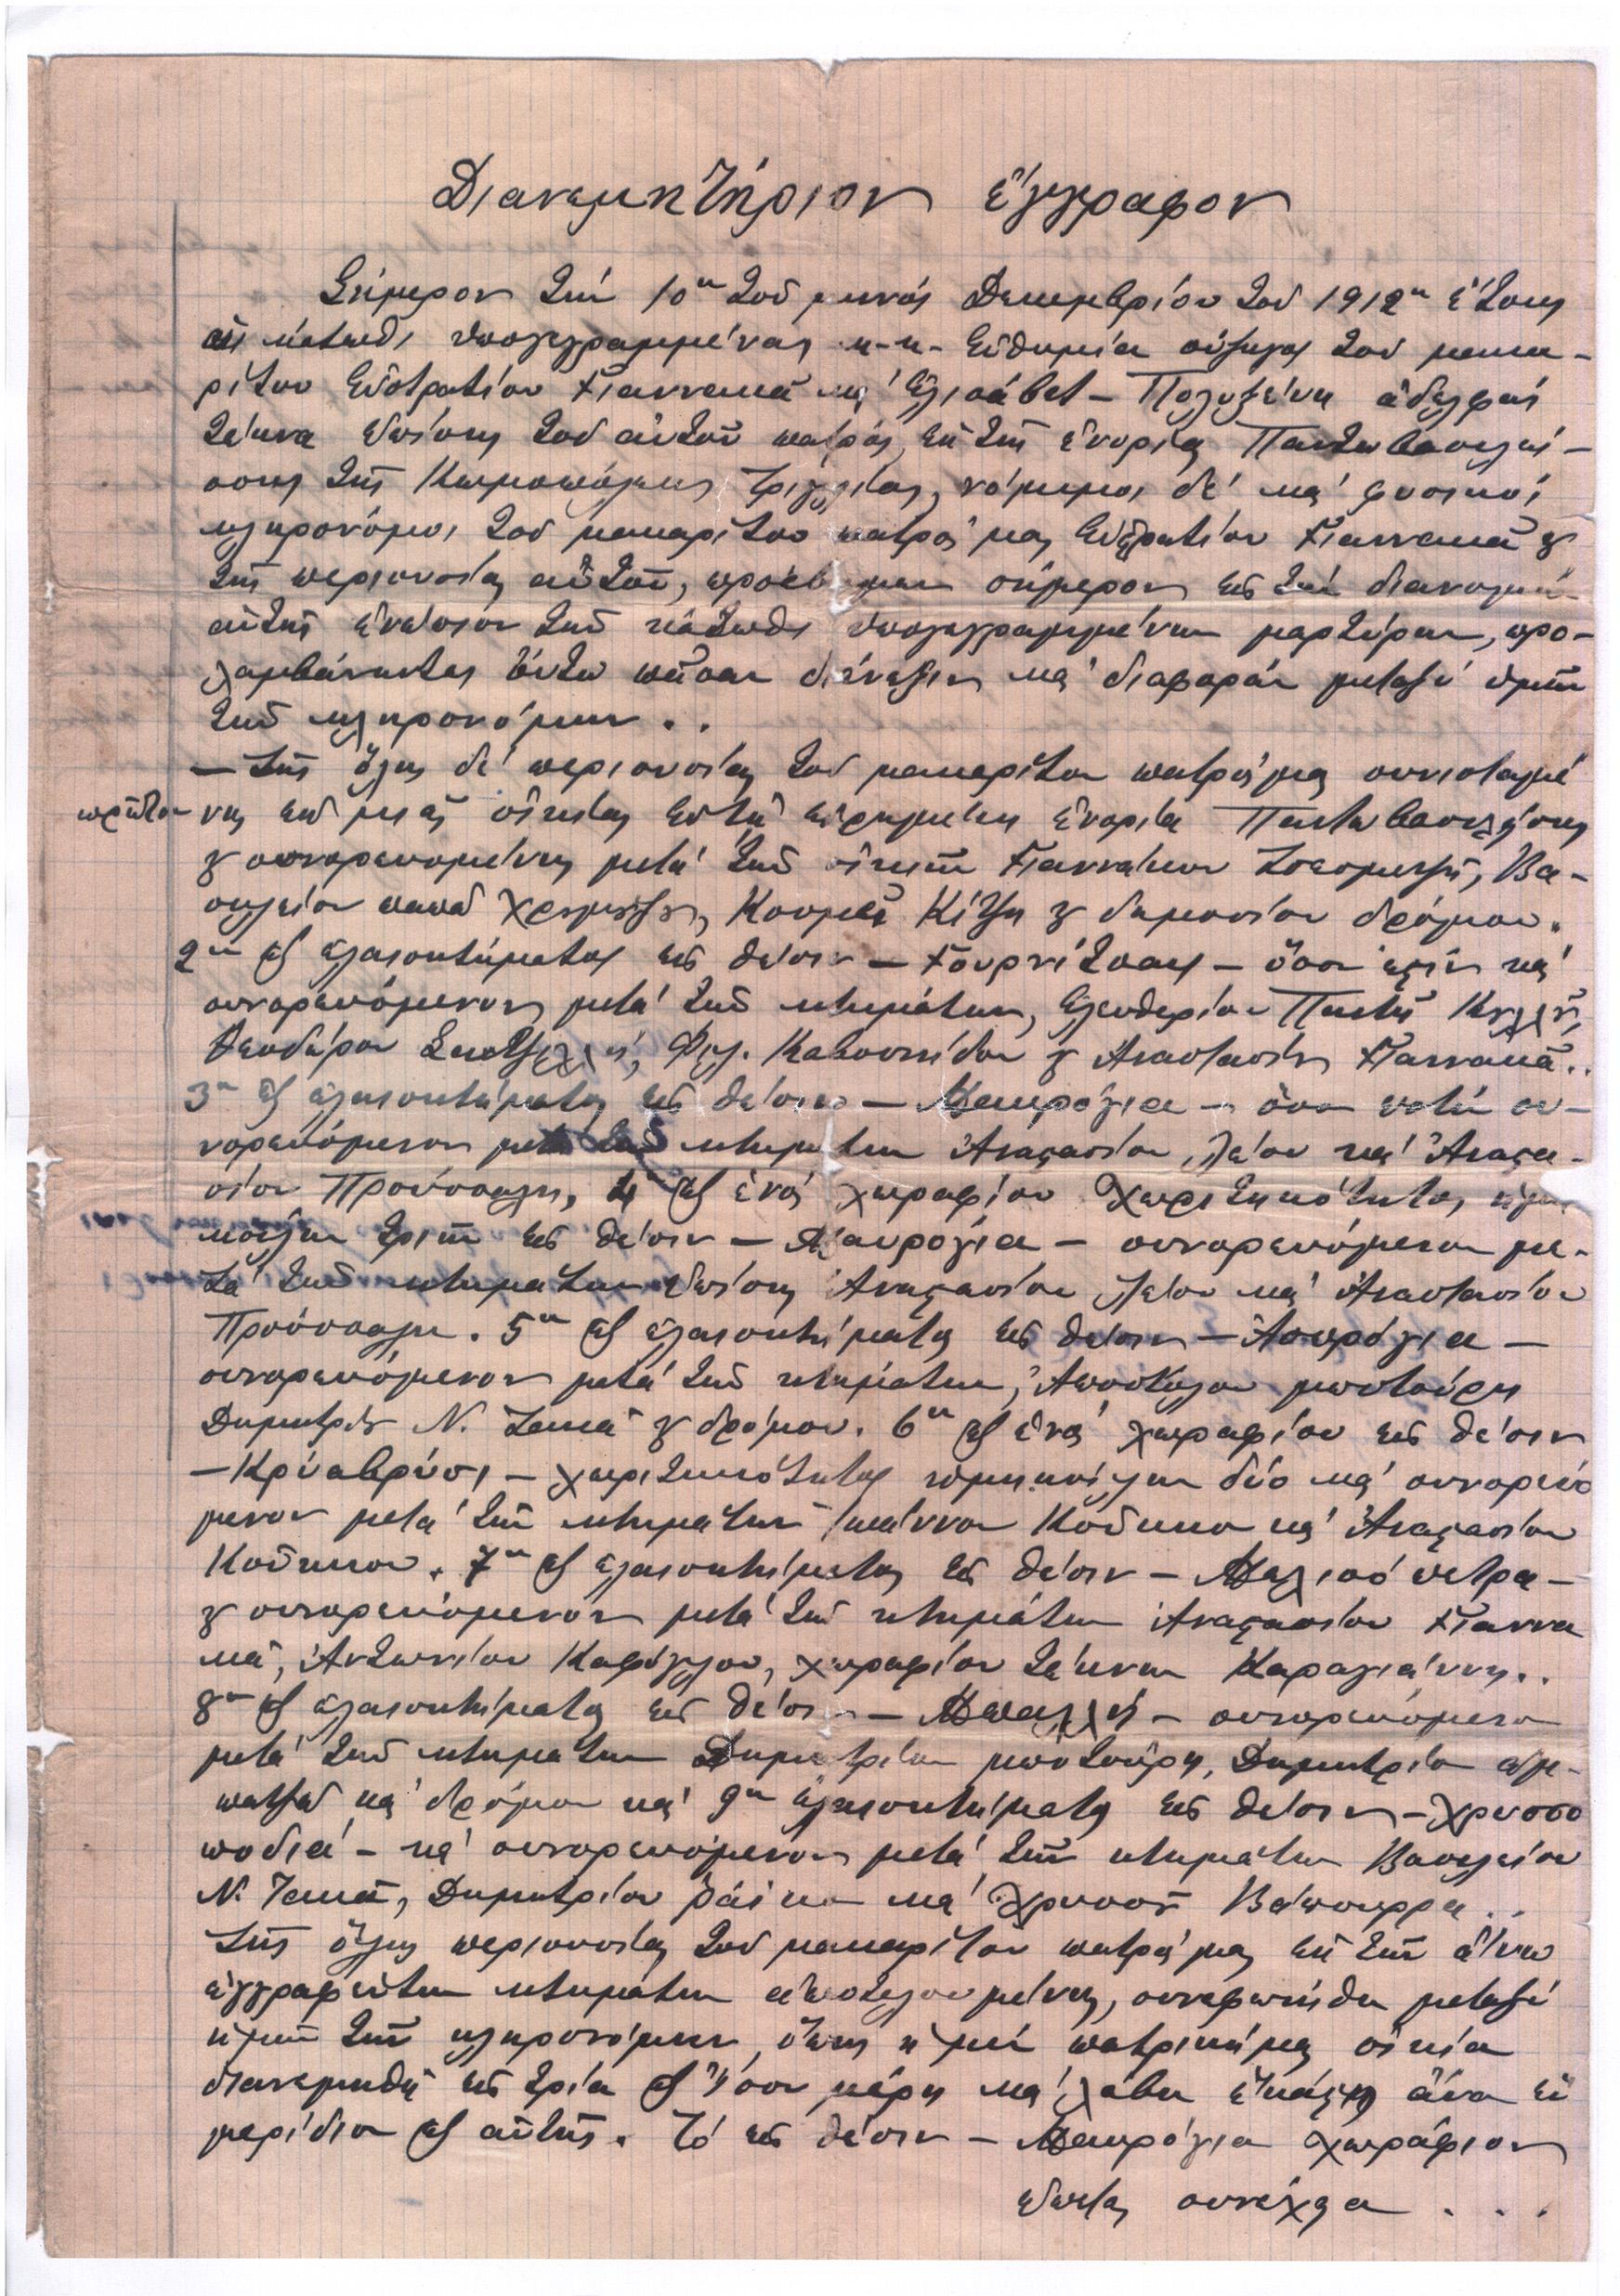 Διανεμητήριον έγγραφον
Σήμερον τήν 10ην τού μηνός Δεκεμβρίου τού 1912ου έτους
αι κάτωθι υπογεγραμμέναι κ-κ- Ευθυμία σύζυγος τού μακα-
ρίτου Ευστρατίου Γιαννακά καί Ελισάβετ - Πολυξένη αδελφαί
τέκνα επίσης τού αυτού πατρός εκ τής ενορίας Παντοβασιλεί-
σσης τής Κωμοπόλεως Τριγλίας, νόμιμοι δέ καί φυσικοί
κληρονόμοι τού μακαρίτου πατρός μας Ευστρατίου Γιαννακά &
τής περιουσίας αυτού, προέβημεν σήμερον εις τήν διανομήν
αυτής ενώπιον τών κάτωθι υπογεγραμμένων μαρτύρων, προ-
λαμβάνοντες ούτω πάσαν διένεξιν καί διαφοράν μεταξύ ημών
τών κληρονόμων . .
- Τής όλης δέ περιουσίας τού μακαρίτου πατρός μας συνισταμέ
πρώτον νης εκ μιάς οικίας εν τή ειρημένη ενορία Παντοβασιλείσσης
& συνορευομένης μετά τών οικιών Γιανναίκου Βα-
σιλείου παπά Κοσμά Κίτζη & δημοσίου δρόμου.
2ον εξ ελαιοκτήματος εις θέσιν - - όσον εστίν καί
συνορευόμενον μετά τών κτημάτων, Ελευθερίου Παντή
Θεοδώρου Φιλ. & Αναστασίου Γιαννακά..
3ον εξ ελαιοκτήματος εις θέσιν - Μαυρόγια - όσον εστίν συ-
νορευόμενον μετά τών κτημάτων Αναστασίου Λείου καί Αναστα-
σίου Προύσσαλη, 4ον εξ ενός χωραφίου χωριτικότητος
κοίλων τριών εις θέσιν - Μαυρόγια - συνορευόμενον με-
τά τών κτημάτων επίσης Αναστασίου Λείου καί Αναστασίου
Προύσσαλη. 5ον εξ ελαιοκτήματος εις θέσιν - Ασπρόγια -
συνορευόμενον μετά τών κτημάτων, Αποστόλου μποτσούρη
Δημητρίου Ν. & δρόμου. 6ον εξ ενός χωραφίου εις θέσιν
- Κρύα βρύσι - χωριτικότητος δύο καί συνορευό
μενον μετά τών κτημάτων Ιωάννου Κούκκου καί Αναστασίου
Κούκκου. 7ον εξ ελαιοκτήματος εις θέσιν - πέτρα -
& συνορευόμενον μετά τών κτημάτων Αναστασίου Γιαννα
κά, Αντωνίου Καφόγλου, χωραφίου τέκνων Καραγιάννη..
8ον εξ ελαιοκτήματος εις θέσιν - - συνορευόμενον
μετά τών κτημάτων Δημητρίου μποτσούρη, Δημητρίου
καί δρόμου καί 9ον ελαιοκτήματος εις θέσιν - χρυσο
ποδιά - καί συνορευόμενον μετά τών κτημάτων Βασιλείου
Ν. Δημητρίου καί Χρυσού
Τής όλης περιουσίας τού μακαρίτου πατρός μας εκ τών άνω
εγγραφέντων κτημάτων αποτελουμένης, συνεφωνήθη μεταξύ
ημών τών κληρονόμων, όπως η μέν πατρική μας οικία
διανεμηθή εις τρία εξ ίσου μέρη καί λάβη εκάστη άνα έν
μερίδιον εξ αυτής. Τό εις θέσιν - Μαυρόγια χωράφιον
έπεται συνέχεια . . .